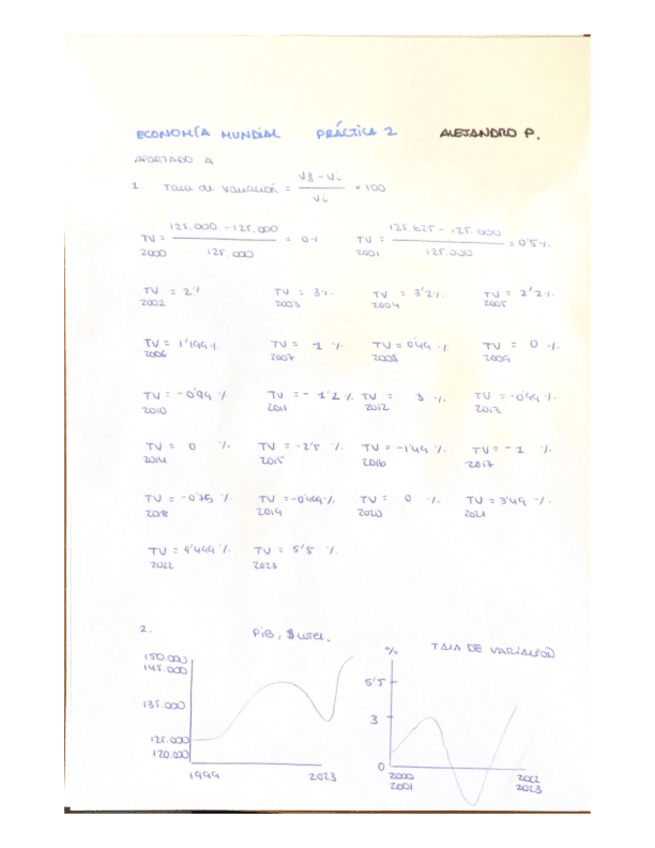 ECONOMÍA MUNDIAL PRÁCTICA 2 ALEJANDRO P.
APARTADO A
1. Tasa de variación = Vf - Vi / Vi × 100
TV 2000 = 125.000 - 125.000 / 125.000 = 0% TV 2001 = 125.625 - 125.000 / 125.000 = 0'5%
TV 2002 = 2% TV 2003 = 3% TV 2004 = 3'2% TV 2005 = 2'2%
TV 2006 = 1'199% TV 2007 = 1% TV 2008 = 0'49% TV 2009 = 0%
TV 2010 = -0'99% TV 2011 = -1'2% TV 2012 = 3% TV 2013 = -0'99%
TV 2014 = 0% TV 2015 = -2'5% TV 2016 = -1'49% TV 2017 = -1%
TV 2018 = -0'75% TV 2019 = -0'499% TV 2020 = 0% TV 2021 = 3'49%
TV 2022 = 4'499% TV 2023 = 5'5%
2. PiB, $
% TASA DE VARIACIÓN
150.000
145.000
5'5
135.000
3
125.000
120.000
0
1999 2023
2000 2022
2001 2023